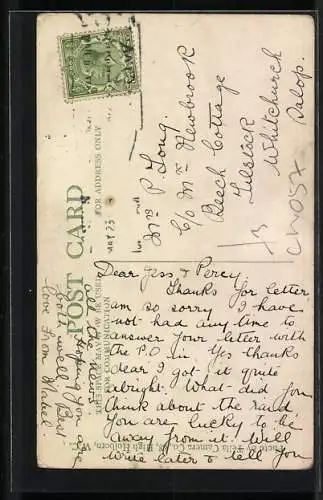 POST CARD
THIS SPACE MAY BE USED
FOR COMMUNICATION
FOR ADDRESS ONLY
MAY 23
Mrs P Long.
c/o Mrs Newbrook
Beech Cottage
Tilstock
Whitchurch
Salop.
CW057
Dear Jess & Percy.
Thanks for letter
am so sorry I have
not had any time to
answer your letter with
the P.O in. Yes thanks
dear I got it quite
alright. What did you
think about the raid
You are lucky to be
away from it. Will
write later & tell you
all the news
Hoping you are
both well.
love from Mabel.
Camera Co., High Holborn, W.C.